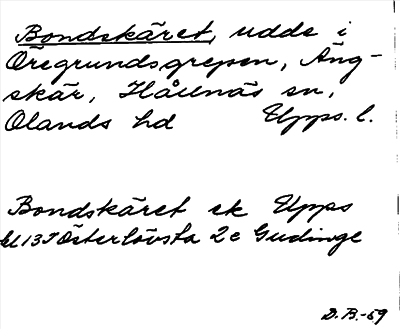 Bondskäret, udde i
Öregrundsgrepen, Äng-
skär, Hållnäs sn,
Olands hd Upps. l.
Bondskäret ek Upps
bl 13I Österlövsta 2c Gudinge
D.B.-59